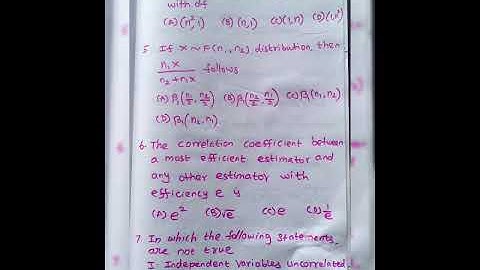 with df
(A) (n²,1) (B) (n,1) (C) (1,n) (D) (1,n²)
5. If X ~ F(n₁,n₂) distribution, then
n₁x / n₂+n₁x follows
(A) β₁(n₁/2, n₂/2) (B) β₁(n₂/2, n₁/2) (C) β₁(n₁,n₂)
(D) β₁(n₂,n₁)
6. The correlation coefficient between
a most efficient estimator and
any other estimator with
efficiency e is
(A) e² (B) √e (C) e (D) 1/e
7. In which the following statements
are not true
I. Independent variables uncorrelated